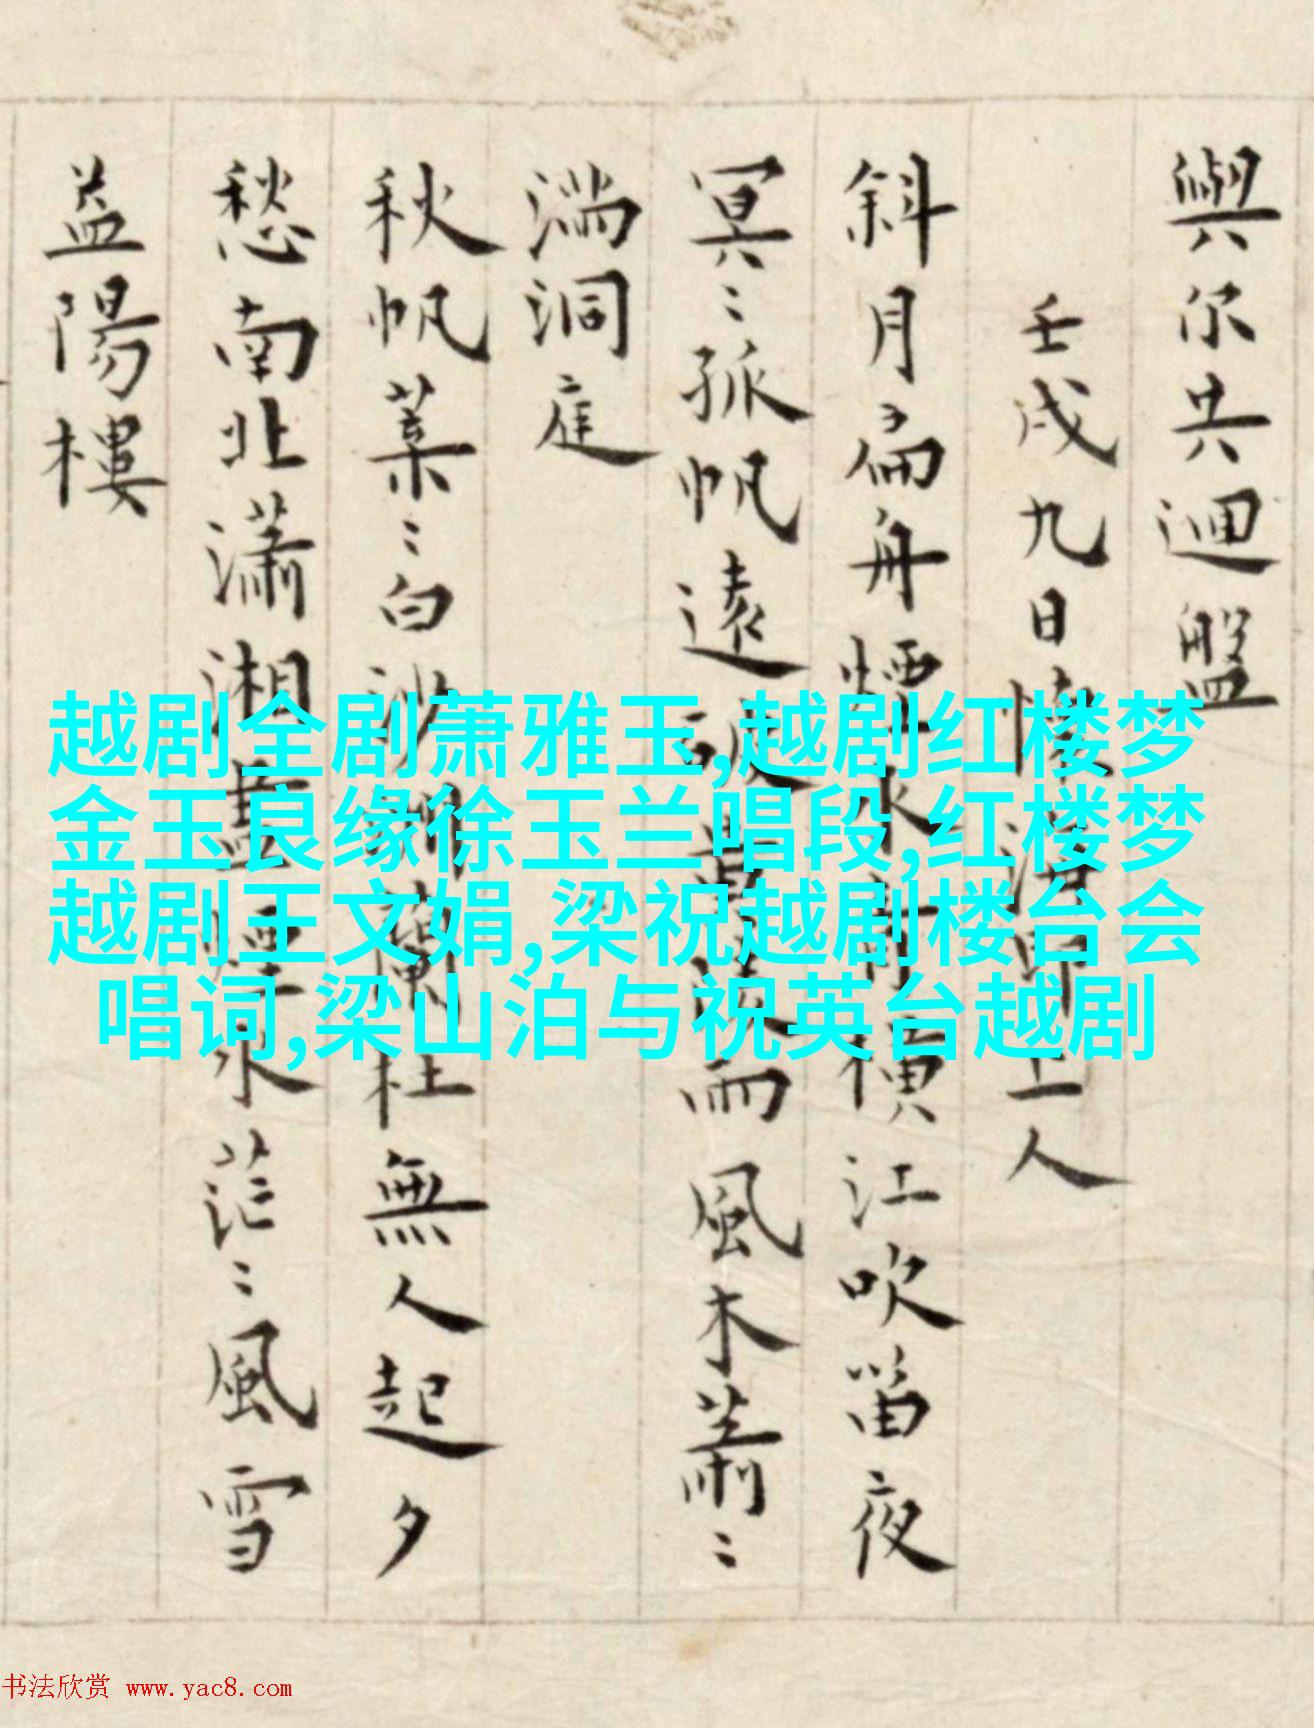 與尔共迴盤
壬戌九日懷上人
斜月扁舟煙水横江吹笛夜
冥〻孤帆遠而風木蕭〻
湍洞庭
秋帆葉〻白沙蘭杜無人起夕
愁南北瀟湘畫煙水茫〻風雪
益陽樓
越剧全剧萧雅玉,越剧红楼梦
金玉良缘徐玉兰唱段,红楼梦
越剧王文娟,梁祝越剧楼台会
唱词,梁山泊与祝英台越剧
书法欣赏 www.yac8.com